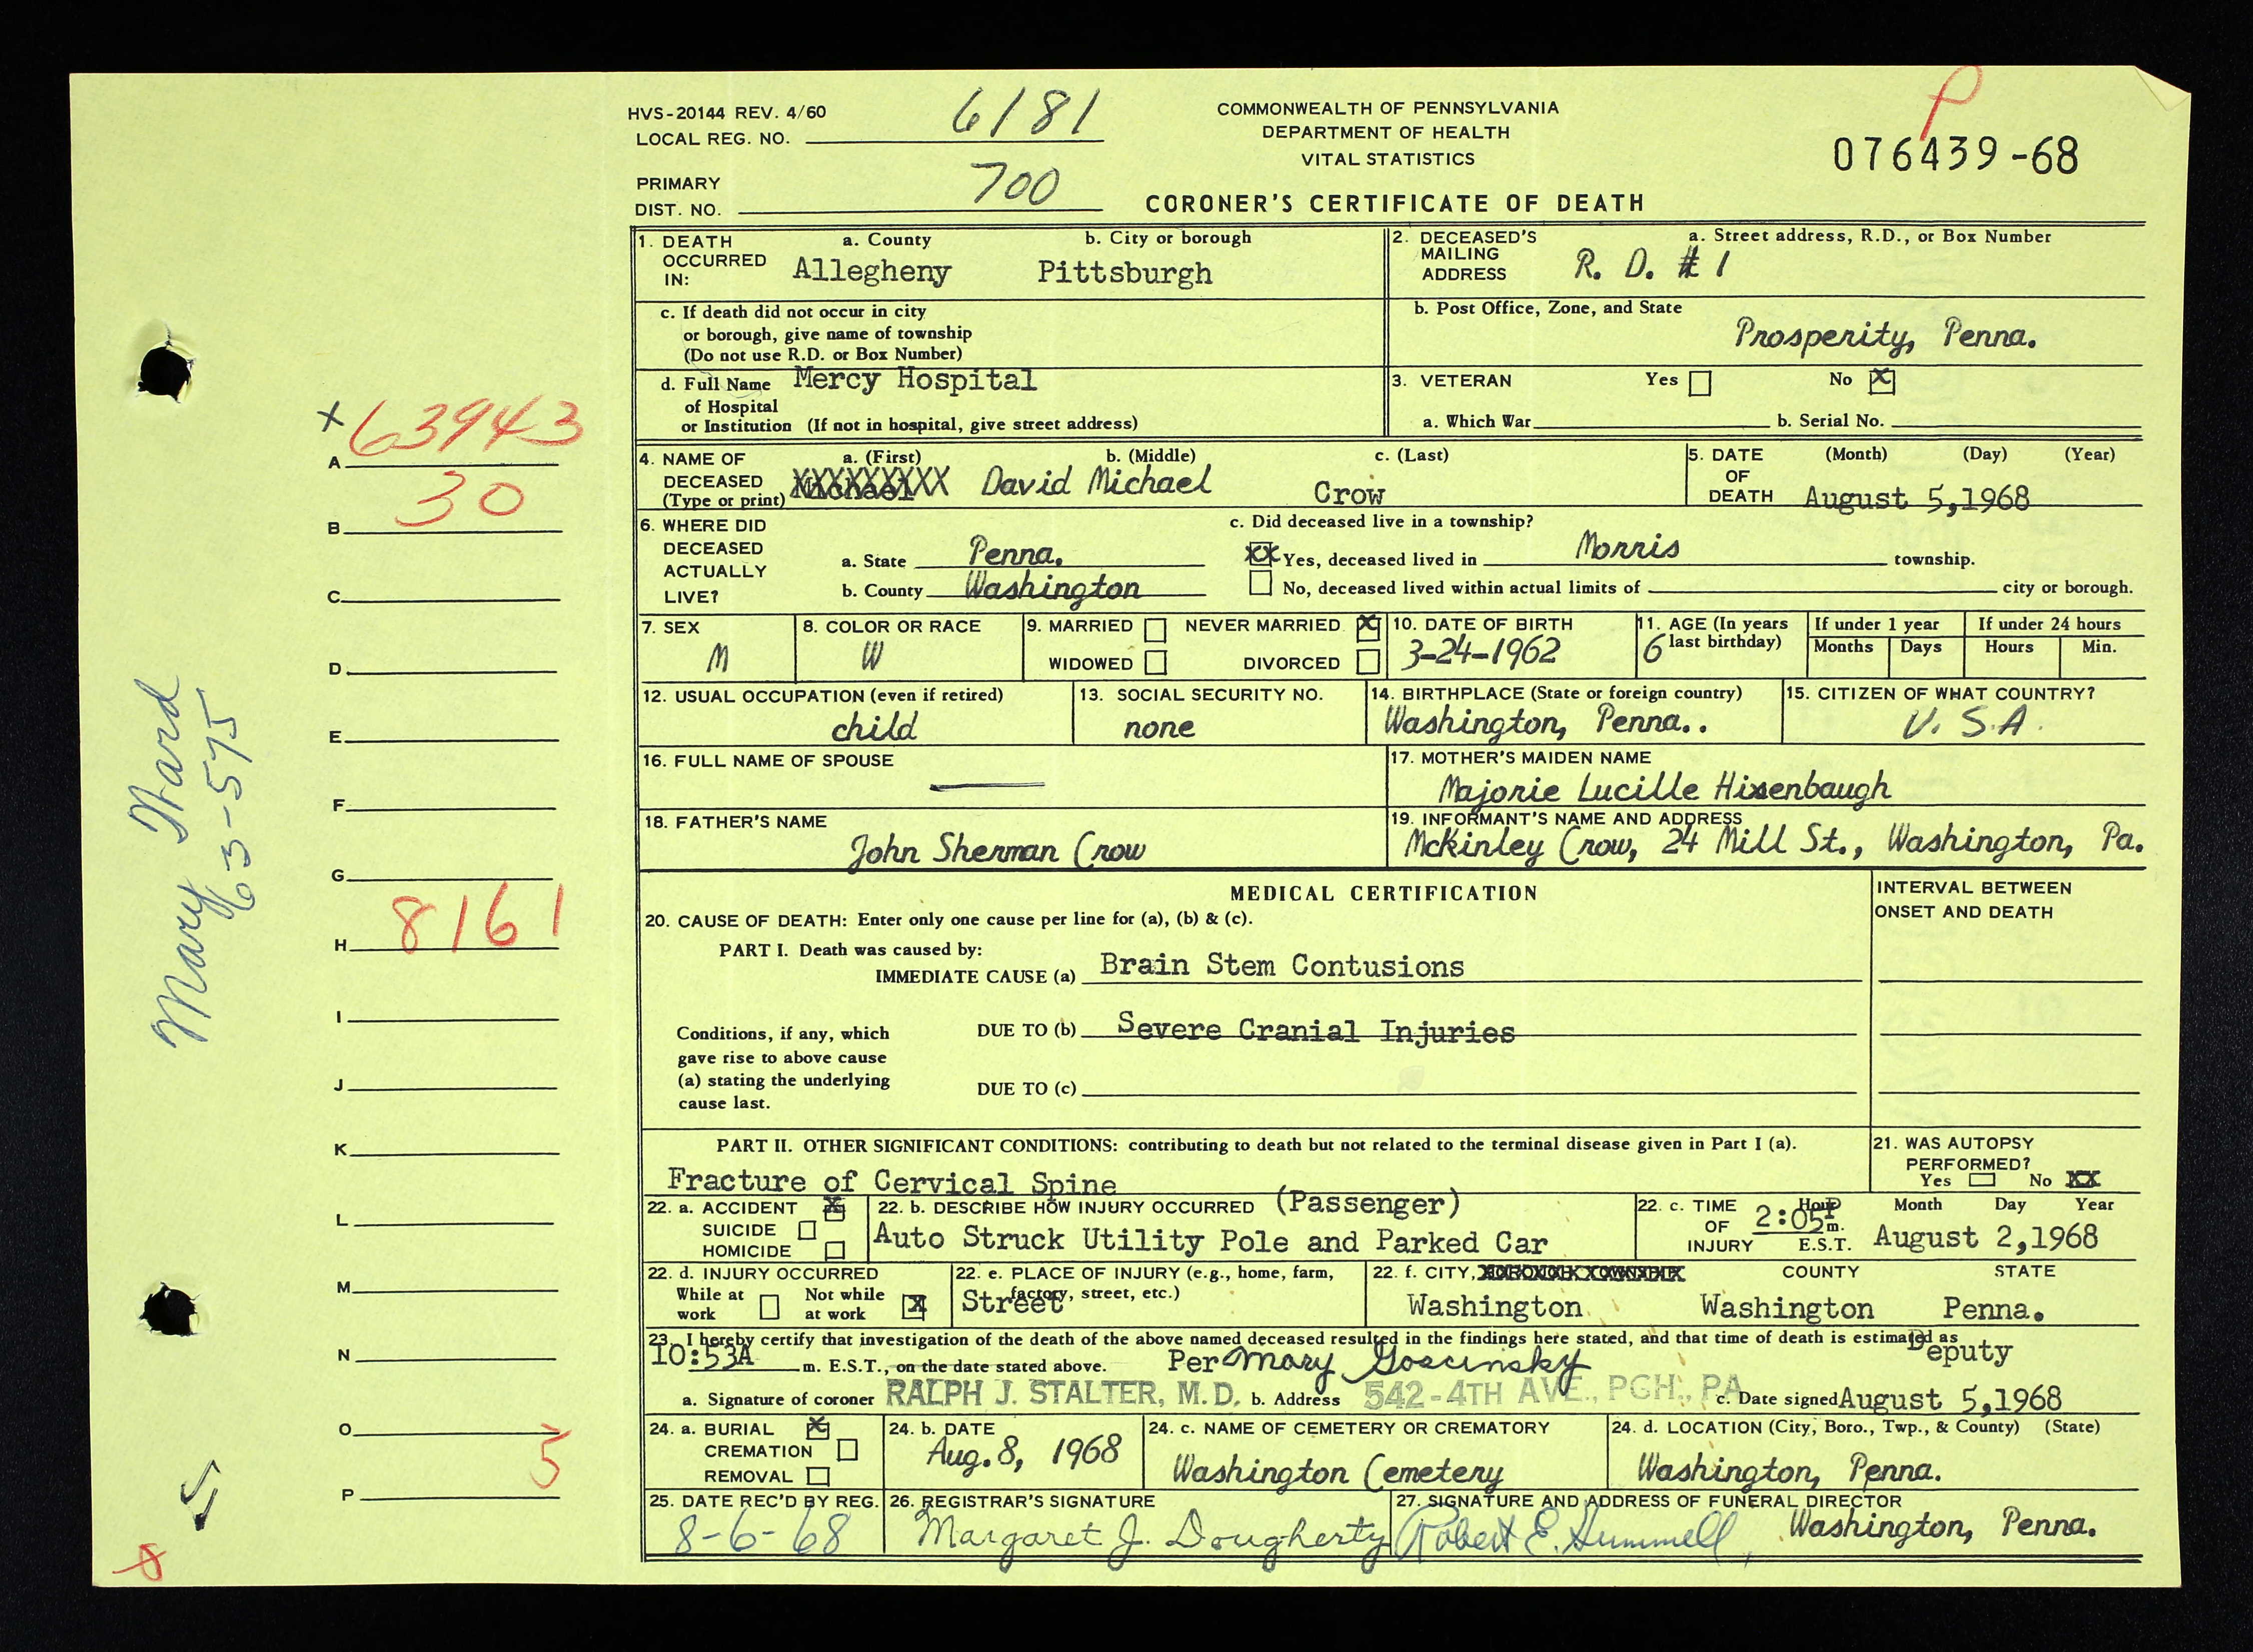 HVS-20144 REV. 4/60
LOCAL REG. NO. 6181
PRIMARY
DIST. NO. 700
COMMONWEALTH OF PENNSYLVANIA
DEPARTMENT OF HEALTH
VITAL STATISTICS
CORONER'S CERTIFICATE OF DEATH
P
076439-68
1. DEATH OCCURRED IN: a. County Allegheny b. City or borough Pittsburgh
2. DECEASED'S MAILING ADDRESS a. Street address, R.D., or Box Number R. D. #1
c. If death did not occur in city
or borough, give name of township
(Do not use R.D. or Box Number)
b. Post Office, Zone, and State
Prosperity, Penna.
d. Full Name Mercy Hospital
of Hospital
or Institution (If not in hospital, give street address)
3. VETERAN Yes No X
a. Which War b. Serial No.
4. NAME OF DECEASED (Type or print) a. (First) b. (Middle) c. (Last)
Michael David Michael Crow
5. DATE OF DEATH (Month) (Day) (Year)
August 5,1968
6. WHERE DID DECEASED ACTUALLY LIVE?
a. State Penna.
b. County Washington
c. Did deceased live in a township?
XX Yes, deceased lived in Morris township.
No, deceased lived within actual limits of city or borough.
7. SEX M
8. COLOR OR RACE W
9. MARRIED NEVER MARRIED X
WIDOWED DIVORCED
10. DATE OF BIRTH 3-24-1962
11. AGE (In years last birthday) 6
If under 1 year Months Days
If under 24 hours Hours Min.
12. USUAL OCCUPATION (even if retired) child
13. SOCIAL SECURITY NO. none
14. BIRTHPLACE (State or foreign country) Washington, Penna..
15. CITIZEN OF WHAT COUNTRY? U. S.A.
16. FULL NAME OF SPOUSE —
17. MOTHER'S MAIDEN NAME
Majorie Lucille Hixenbaugh
18. FATHER'S NAME
John Sherman Crow
19. INFORMANT'S NAME AND ADDRESS
McKinley Crow, 24 Mill St., Washington, Pa.
MEDICAL CERTIFICATION
INTERVAL BETWEEN
ONSET AND DEATH
20. CAUSE OF DEATH: Enter only one cause per line for (a), (b) & (c).
PART I. Death was caused by:
IMMEDIATE CAUSE (a) Brain Stem Contusions
Conditions, if any, which
gave rise to above cause
(a) stating the underlying
cause last.
DUE TO (b) Severe Cranial Injuries
DUE TO (c)
PART II. OTHER SIGNIFICANT CONDITIONS: contributing to death but not related to the terminal disease given in Part I (a).
Fracture of Cervical Spine
21. WAS AUTOPSY
PERFORMED?
Yes No XX
22. a. ACCIDENT X
SUICIDE
HOMICIDE
22. b. DESCRIBE HOW INJURY OCCURRED (Passenger)
Auto Struck Utility Pole and Parked Car
22. c. TIME OF INJURY Hour 2:05P m. E.S.T.
Month Day Year
August 2,1968
22. d. INJURY OCCURRED
While at work Not while at work X
22. e. PLACE OF INJURY (e.g., home, farm,
factory, street, etc.)
Street
22. f. CITY, BOROUGH, TOWNSHIP COUNTY STATE
Washington Washington Penna.
23. I hereby certify that investigation of the death of the above named deceased resulted in the findings here stated, and that time of death is estimated as
10:53A m. E.S.T., on the date stated above. Per Mary Goscinsky Deputy
a. Signature of coroner RALPH J. STALTER, M.D. b. Address 542-4TH AVE., PGH., PA c. Date signed August 5,1968
24. a. BURIAL X
CREMATION
REMOVAL
24. b. DATE
Aug. 8, 1968
24. c. NAME OF CEMETERY OR CREMATORY
Washington Cemetery
24. d. LOCATION (City, Boro., Twp., & County) (State)
Washington, Penna.
25. DATE REC'D BY REG.
8-6-68
26. REGISTRAR'S SIGNATURE
Margaret J. Dougherty
27. SIGNATURE AND ADDRESS OF FUNERAL DIRECTOR
Robert E. Hummell, Washington, Penna.
X 63943
A
30
B
C
D
E
F
G
8161
H
I
J
K
L
M
N
O
5
P
Mary Ward
63-575